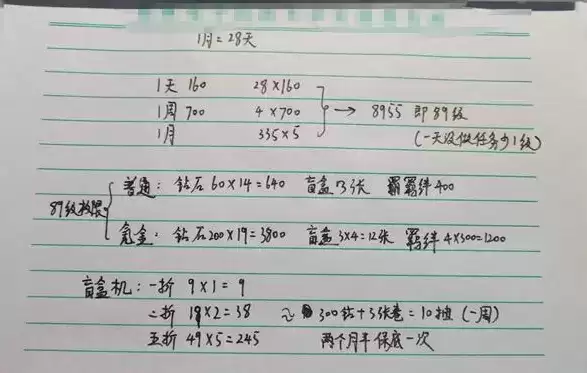 1月=28天
1天 160 28×160
1周 700 4×700 → 8955 即89级
1月 335×5 (一天没做任务少1级)
89级权限
普通: 钻石60×14=640 盲盒 3张 羁绊400
氪金: 钻石200×19=3800 盲盒3×4=12张 羁绊4×300=1200
盲盒机: 一折 9×1=9
二折 19×2=38 ≈ 300钻+3张卷=10抽(一周)
五折 49×5=245 两个月半保底一次